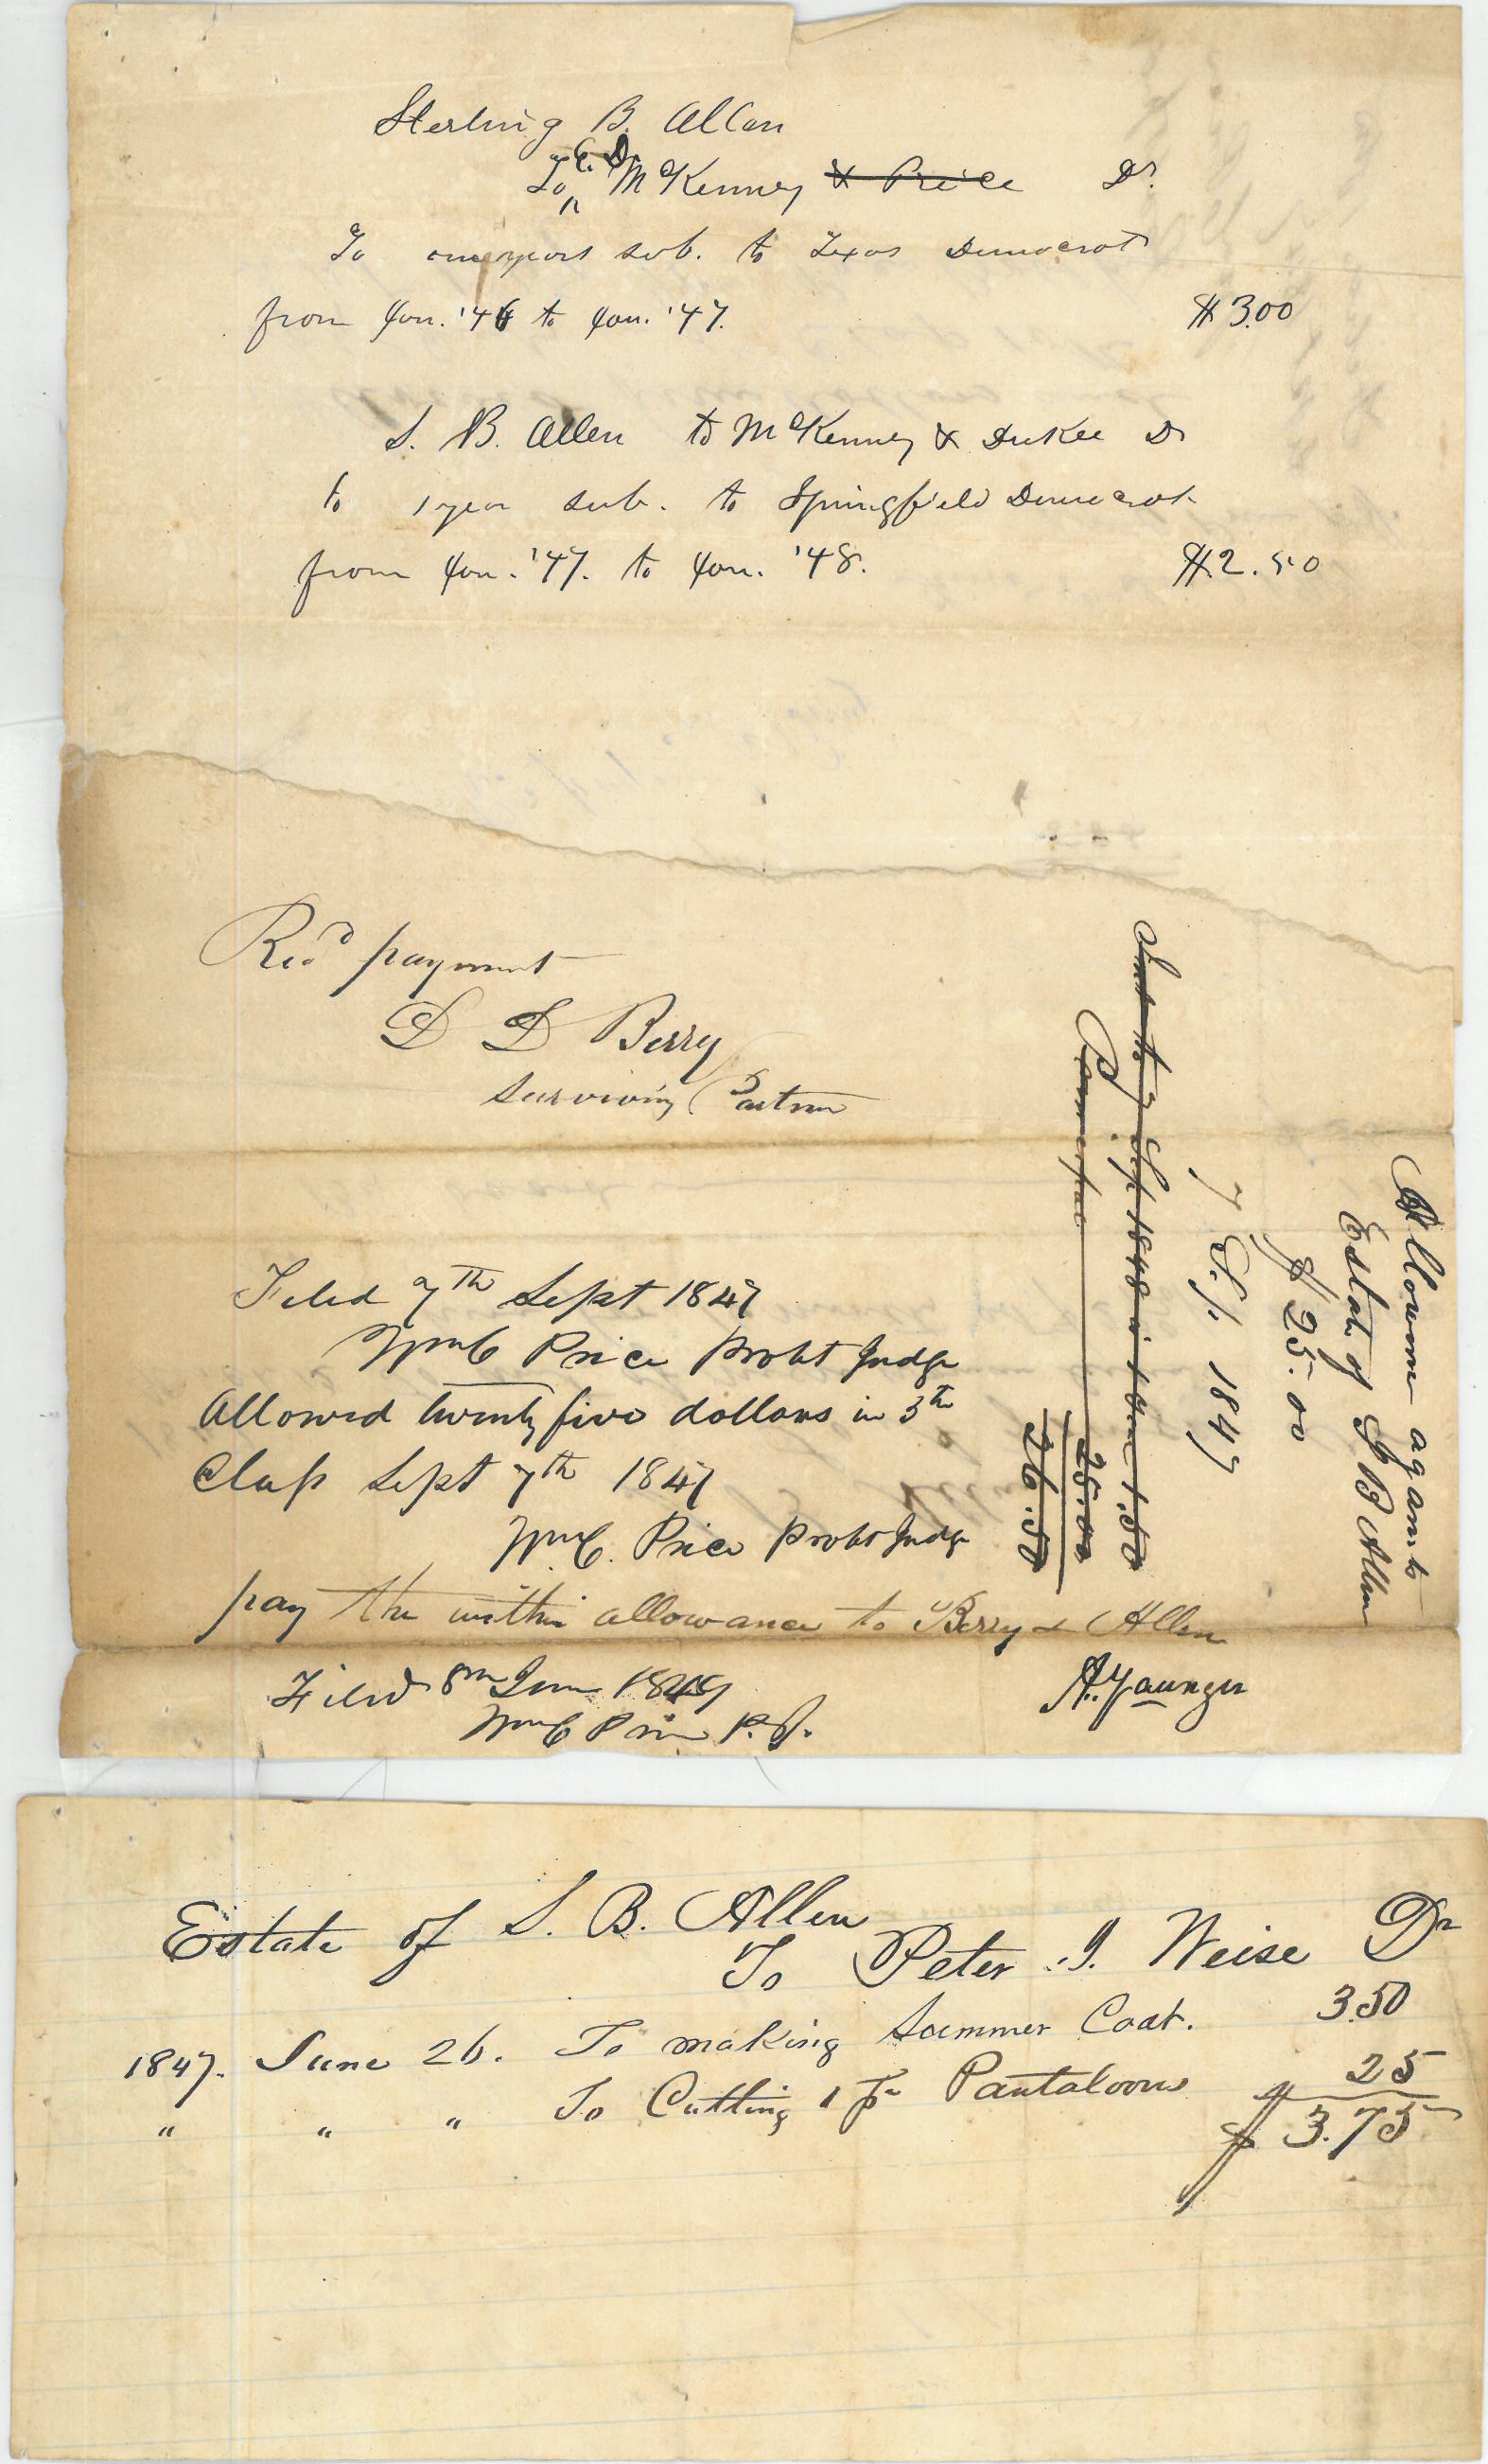 Sterling B. Allen
To E. D. McKenney & Price Dr.
To one years sub. to Texas Democrat
from Jan. '46 to Jan. '47. $3.00
S. B. Allen to McKenney & DuKee Dr
to 1 year sub. to Springfield Democrat
from Jan. '47. to Jan. '48. $2.50
Recd payment
D D Berry
Surviving Partner
Filed 7th Sept 1847
Wm C Price Probt Judge
Allowed twenty five dollars in 5th
Class Sept 7th 1847
Wm C. Price Probt Judge
pay the within allowance to Berry & Allen
A. Younger
Filed 8th June 1849
Wm C Price P. J.
Allowance against
Estate of S B Allen
$25.00
7 Sep. 1847
to 7 Sep 1848 is 1.50
25.00
26.50
Estate of S. B. Allen
To Peter J. Weise Dr
1847. June 26. To making Summer Coat. 3.50
" " " To Cutting 1 Pr Pantaloons 25
$ 3.75